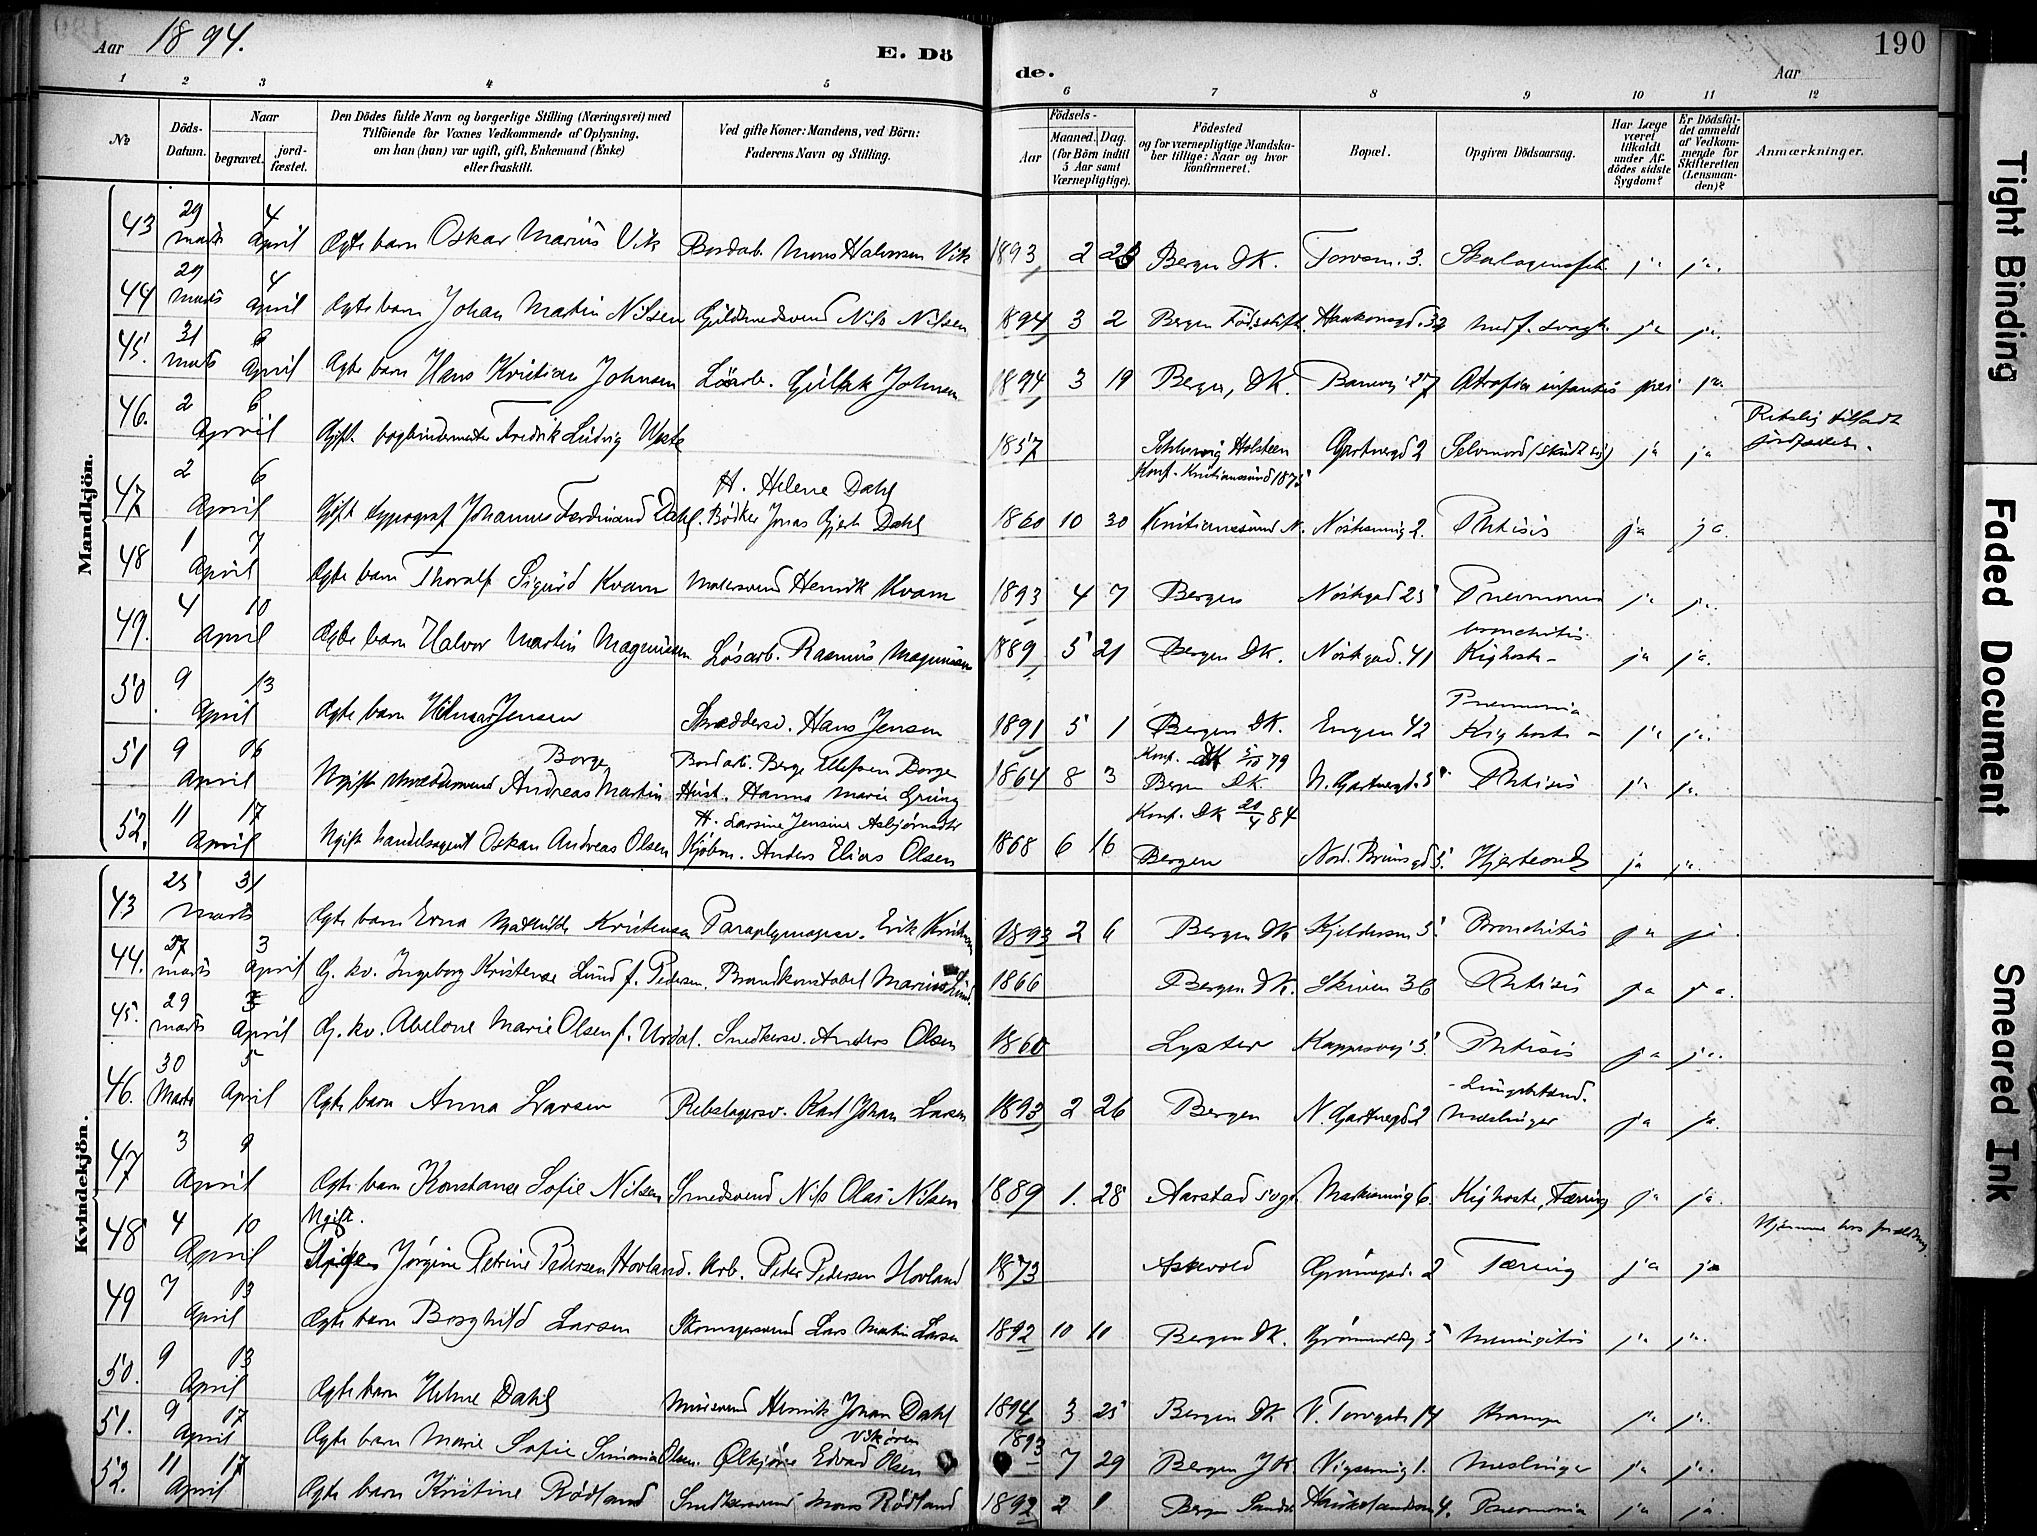 Aar 1894.
E. Dö
de.
Aar
190
1 2 3 4 5 6 7 8 9 10 11 12
№
Döds-Datum.
Naar
begravet.
jord-fæstet.
Den Dödes fulde Navn og borgerlige Stilling (Næringsvei) med
Tilföiende for Voxnes Vedkommende af Oplysning,
om han (hun) var ugift, gift, Enkemand (Enke)
eller fraskilt.
Ved gifte Koner: Mandens, ved Börn:
Faderens Navn og Stilling.
Födsels-
Aar
Maaned. Dag.
(for Börn indtil
5 Aar samt
Værnepligtige).
Födested
og for værnepligtige Mandska-
ber tillige: Naar og hvor
konfirmeret.
Bopæl.
Opgiven Dödsaarsag.
Har Læge
været
tilkaldt
under Af-
dödes sidste
Sygdom?
Er Dödsfal-
det anmeldt
af Vedkom-
mende for
Skifteretten
(Lensman-
den)?
Anmærkninger.
Mandkjön.
43 29 marts 4 April Ægte barn Oskar Marius Vik Bordarb. Mons Halvorsen Vik 1893 2 Bergen DK. Torvsm. 3. ja ja.
44 29 marts 4 April Ægte barn Johan Martin Nilsen Guldsmedsvend Nils Nilsen 1894 3 2 Bergen Födselsstift Haakonsgd. 32 Medf. svagh. ja ja
45. 31 marts 6 April Ægte barn Hans Kristian Johnsen Lösarb. Johnsen 1894 3 19 Bergen, DK. 27 Atrofia infantis nei ja.
46. 2 6 April Gift bogbindermester Fredrik Ludvig 1857 Schleswig Holsteen Gartnergd 2 Selvmord (skudt sig) ja ja
Konf. Kristianssund 1875
47 2 6 April Gift typograf Johannes Ferdinand Dahl. H. Helene Dahl
Bödker Jonas Dahl 1860 10 30 Kristianssund N. 2. Phtisis ja ja.
48 1 7 April Ægte barn Thoralf Sigurd Kvam Malersvend Henrik Kvam 1893 4 7 Bergen Nöstegad 25 Pneumoni ja ja.
49. 4 10 April Ægte barn Halvor Martin Magnussen Lösarb. Rasmus Magnussen 1889 5 21 Bergen DK. Nöstegad. 41 bronchitis
Kighoste ja ja.
50. 9 13 April Ægte barn Hilmar Jensen Skræddersv. Hans Jensen 1891 5 1 Bergen DK. Engen 42 Pneumonia
Kighoste ja ja.
51 9 16 April Ugift skræddersvend Andreas Martin Borge Bordarb. Berge Ellefsen Borge
Hust. Hanna Marie Gruing 1864 8 3 Konf. DK 5/10 79
Bergen DK. N. Gartnergd. 5 Phtisis ja ja.
52. 11 17 April Ugift handelsagent Oskar Andreas Olsen H. Larsine Jensine Asbjörnsdtr
Kjöbm. Anders Elias Olsen 1868 6 16 Konf. DK 20/4 84
Bergen Nord. Bruunsgd 5. Hjerteonde ja ja.
Kvindekjön.
43 25 31 Marts Ægte barn Erna Mathilde Kristensen Paraplymagersv. Erik Kristensen 1893 2 6 Bergen DK Kjeldersm 5. Bronchitis ja ja.
44. 27 marts 3 April G. kv. Ingeborg Kristense Lund f. Pedersen. Brandkonstabel Marius Lund. 1866 Bergen DK. Skiven 36 Phtisis ja ja.
45. 29 marts 3 April G. kv. Abelone Marie Olsen f. Urdal. Snedkersv. Anders Olsen 1860 Lyster Kappesvei 5. Phtisis ja ja.
46. 30 Marts 5 April Ægte barn Anna Larsen Rebslagersv. Karl Johan Larsen 1893 2 26 Bergen N. Gartnergd 2 Lungebetænd.
Mæslinger ja ja.
47 3 9 April Ægte barn Konstanse Sofie Nilsen Smedsvend Nils Olai Nilsen 1889 1. 28 Aarstad sogn 6. Kighoste, Tæring ja ja
48 4 10 April Ugift.
Pige Jørgine Petrine Pedersen Hovland. Arb. Peder Pedersen Hovland 1873 Askvold Grönnegad. 2 Tæring ja ja Hjemme hos forældrene
49 7 13 April Ægte barn Borghild Larsen Skomagersvend Lars Martin Larsen 1892 10 10 Bergen DK. 5 Meningitis ja ja.
50. 9 13 April Ægte barn Helene Dahl Mursvend Henrik Johan Dahl 1894 3 25 Bergen DK V. Torvgade 14 Krampe ja ja.
51. 9 17 April Ægte barn Marie Sofie Simonia Olsen. Ølkjörer Edvard Olsen 1893 7 29 Bergen JK. Vigsmug 1. Meslinger ja ja.
52. 11 17 April Ægte barn Kristine Rödland Snedkersvend Mons Rödland 1892 2 1 Bergen 4. Pneumonia ja ja
Tight Binding
Faded Document
Smeared Ink